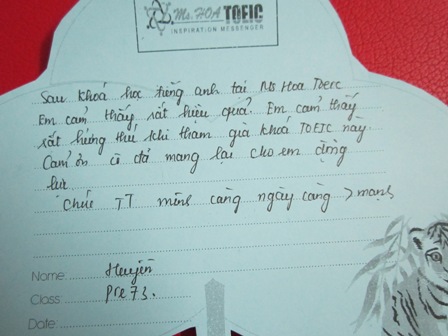 Ms. HOA TOEIC
INSPIRATION MESSENGER
Sau khoá học tiếng anh tại Ms Hoa Toeic
Em cảm thấy rất hiệu quả. Em cảm thấy
rất hứng thú khi tham gia khoá TOEIC này.
Cảm ơn cô đã mang lại cho em động
lực
Chúc TT mình càng ngày càng > mạnh
Name: Huyền
Class: Pre 73.
Date: